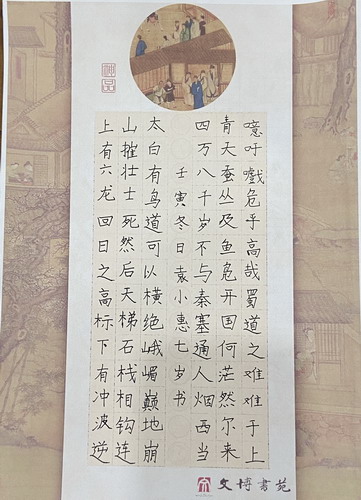 噫吁嚱危乎高哉蜀道之难难于上
青天蚕丛及鱼凫开国何茫然尔来
四万八千岁不与秦塞通人烟西当
太白有鸟道可以横绝峨嵋巅地崩
山摧壮士死然后天梯石栈相钩连
上有六龙回日之高标下有冲波逆
壬寅冬日袁小惠七岁书
文博書苑